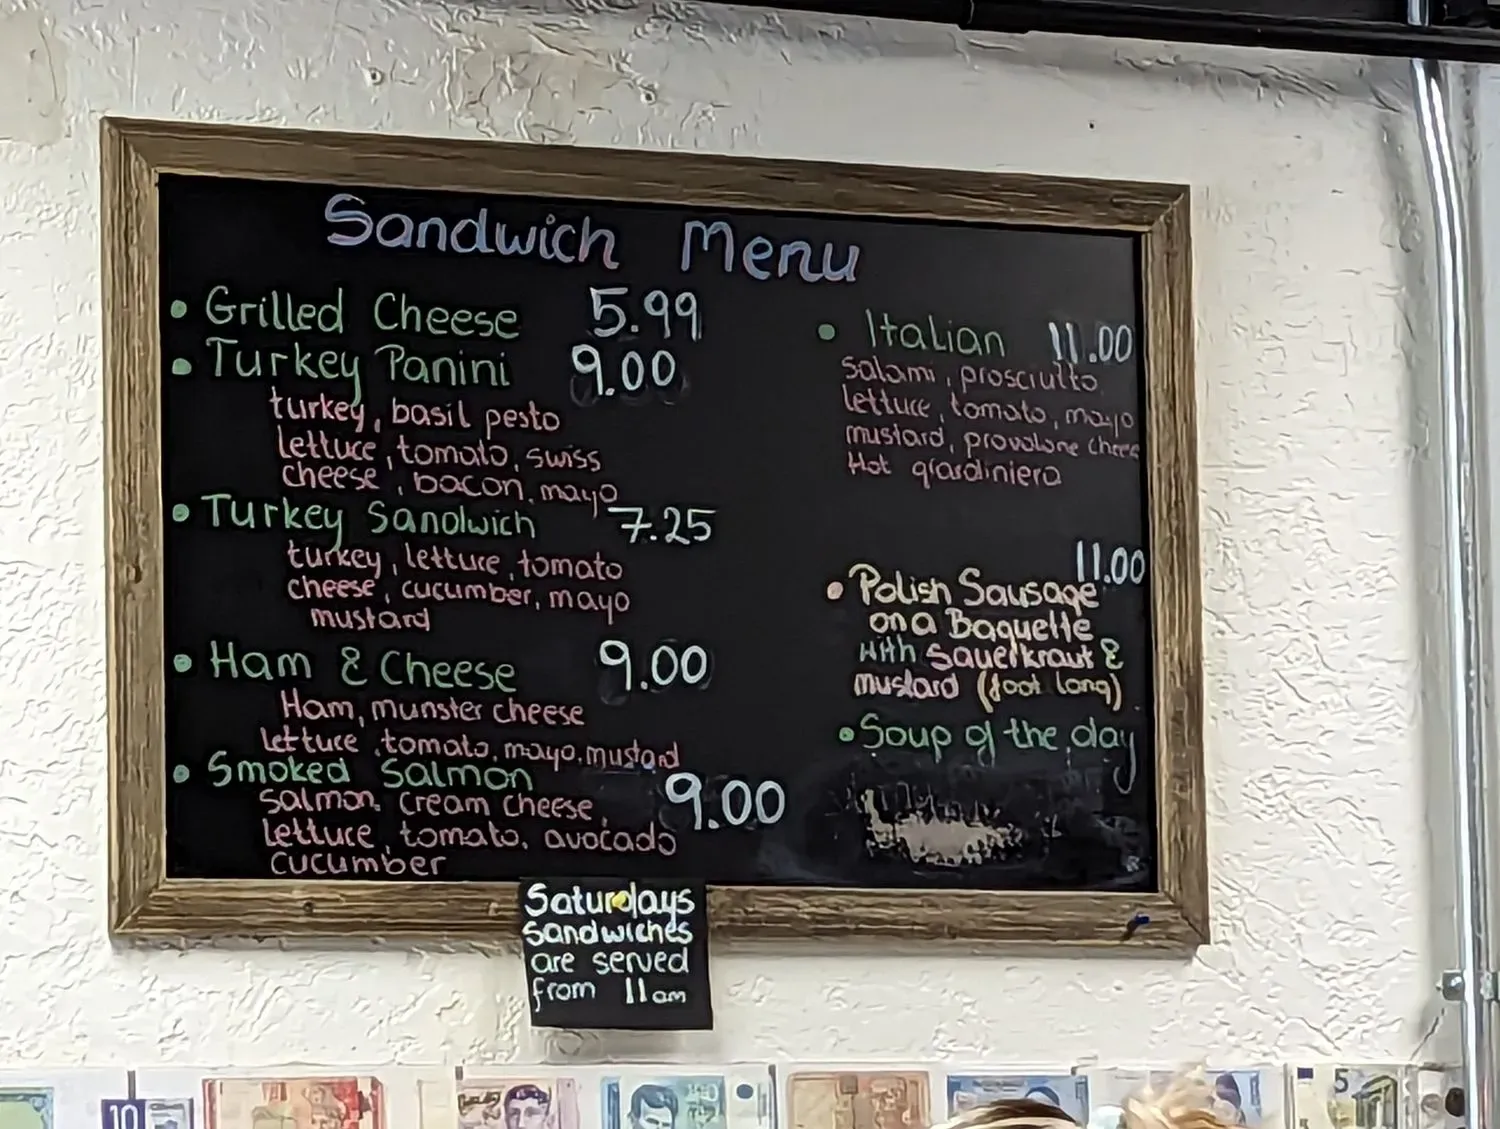 Sandwich Menu
• Grilled Cheese 5.99
• Turkey Panini 9.00
turkey, basil pesto
lettuce, tomato, swiss
cheese, bacon, mayo
• Turkey Sandwich 7.25
turkey, lettuce, tomato
cheese, cucumber, mayo
mustard
• Ham & Cheese 9.00
Ham, munster cheese
lettuce, tomato, mayo, mustard
• Smoked Salmon 9.00
salmon, cream cheese,
lettuce, tomato, avocado
cucumber
• Italian 11.00
salami, prosciutto
lettuce, tomato, mayo
mustard, provolone cheese
Hot giardiniera
11.00
• Polish Sausage
on a Baguette
with sauerkraut &
mustard (foot long)
• Soup of the day
Saturdays
Sandwiches
are served
from 11am
10
5